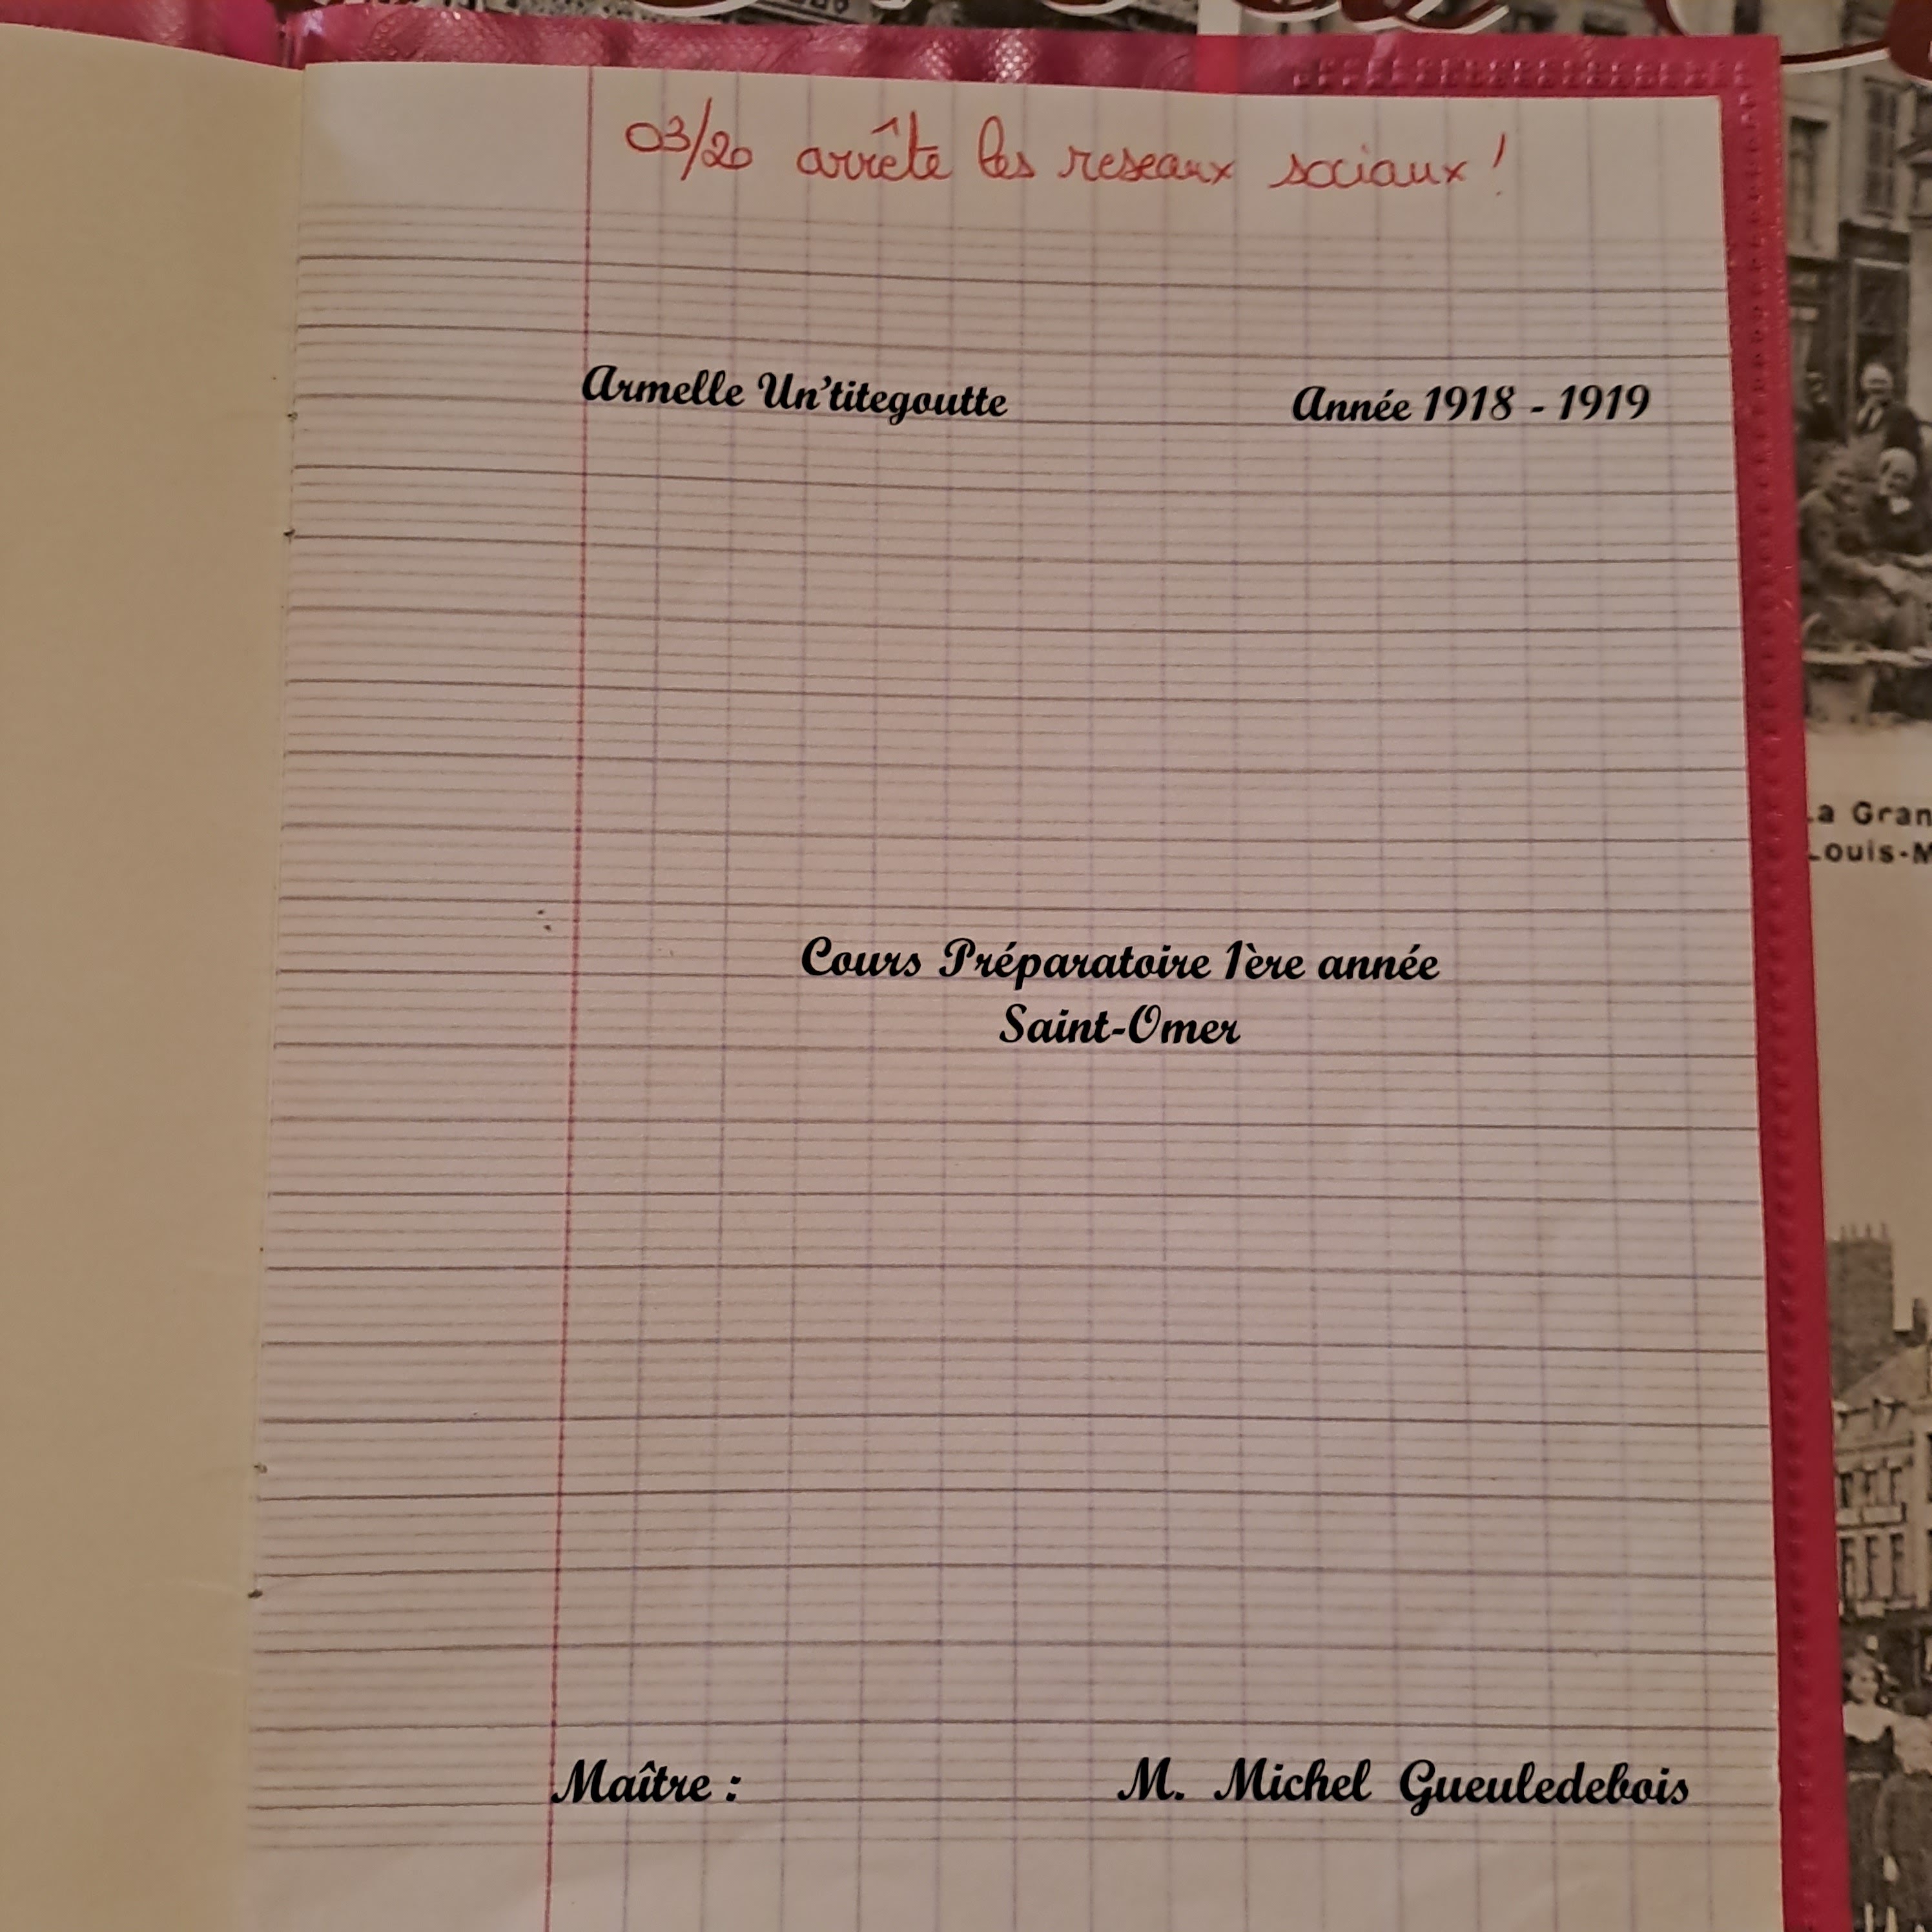 03/20 arrête les reseaux sociaux !
Armelle Un'titegoutte Année 1918 - 1919
La Gran
Louis-M
Cours Préparatoire 1ère année
Saint-Omer
Maître : M. Michel Gueuledebois